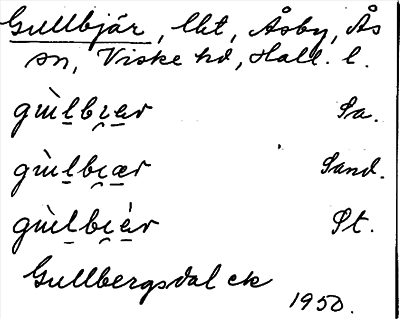 Gullbjär, lkt, Åsby, Ås
sn, Viske hd, Hall. l.
gùl̲bɪ̯a̲r Sa.
gùl̲bɪ̯æ̲r Sand.
gùl̲bɪ̯à̲r St.
Gullbergsdal ek
1950.